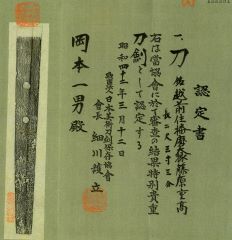 認定書
一、刀 於越前住播磨大掾藤原重高
長二尺三寸五分
右は當協會に於て審査の結果特別貴重
刀劍として認定する
昭和四十二年三月十二日
財團法人日本美術刀劍保存協會
會長 細川護立
岡本一男殿